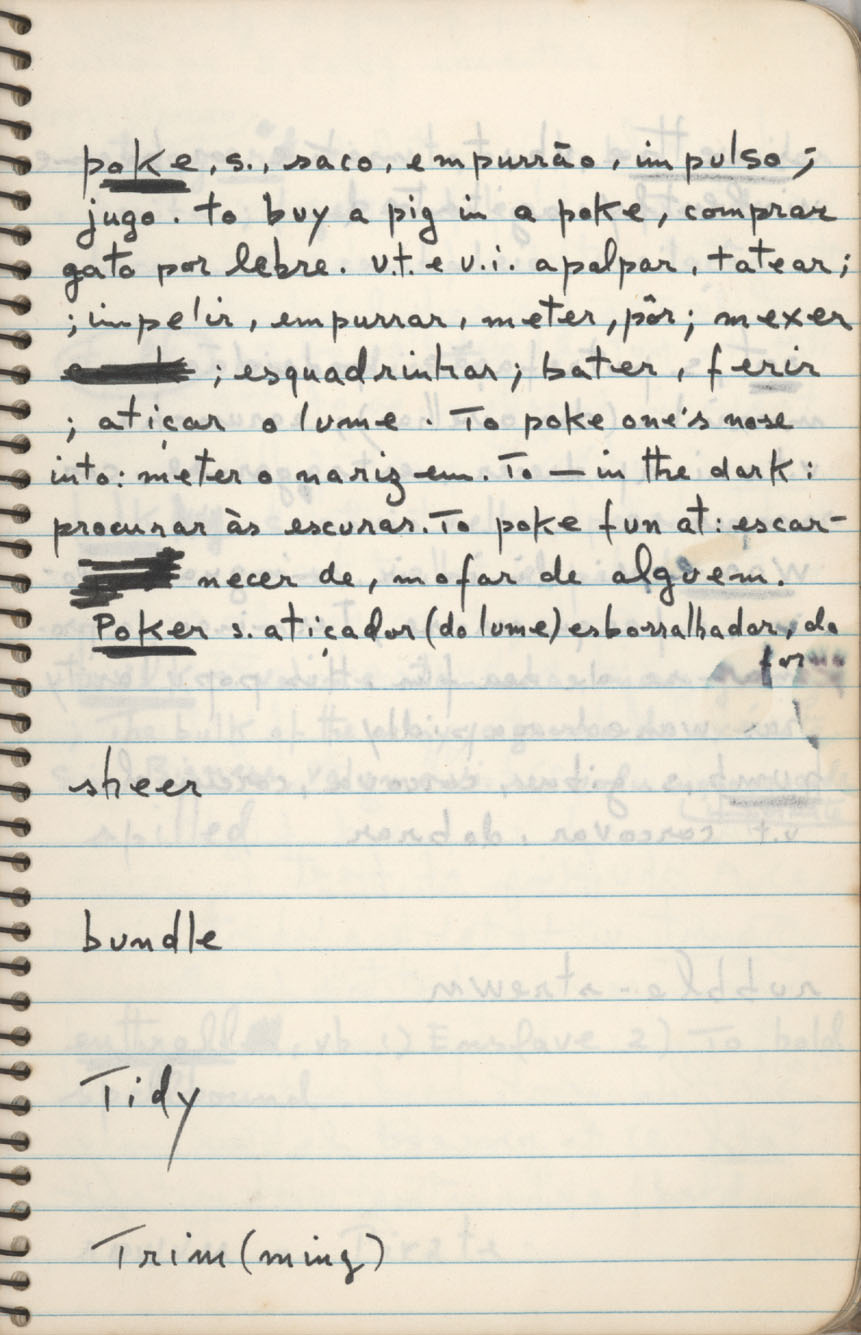 poke, s., saco, empurrão, impulso;
jugo. to buy a pig in a poke, comprar
gato por lebre. v.t. e v.i. apalpar, tatear;
; impelir, empurrar, meter, pôr; mexer
; esquadrinhar; bater, ferir
; atiçar o lume. To poke one's nose
into: meter o nariz em. To — in the dark:
procurar às escuras. To poke fun at: escar-
necer de, mofar de alguem.
Poker s. atiçador (do lume) esborralhador, do
sheer
bundle
Tidy
Trim(ming)